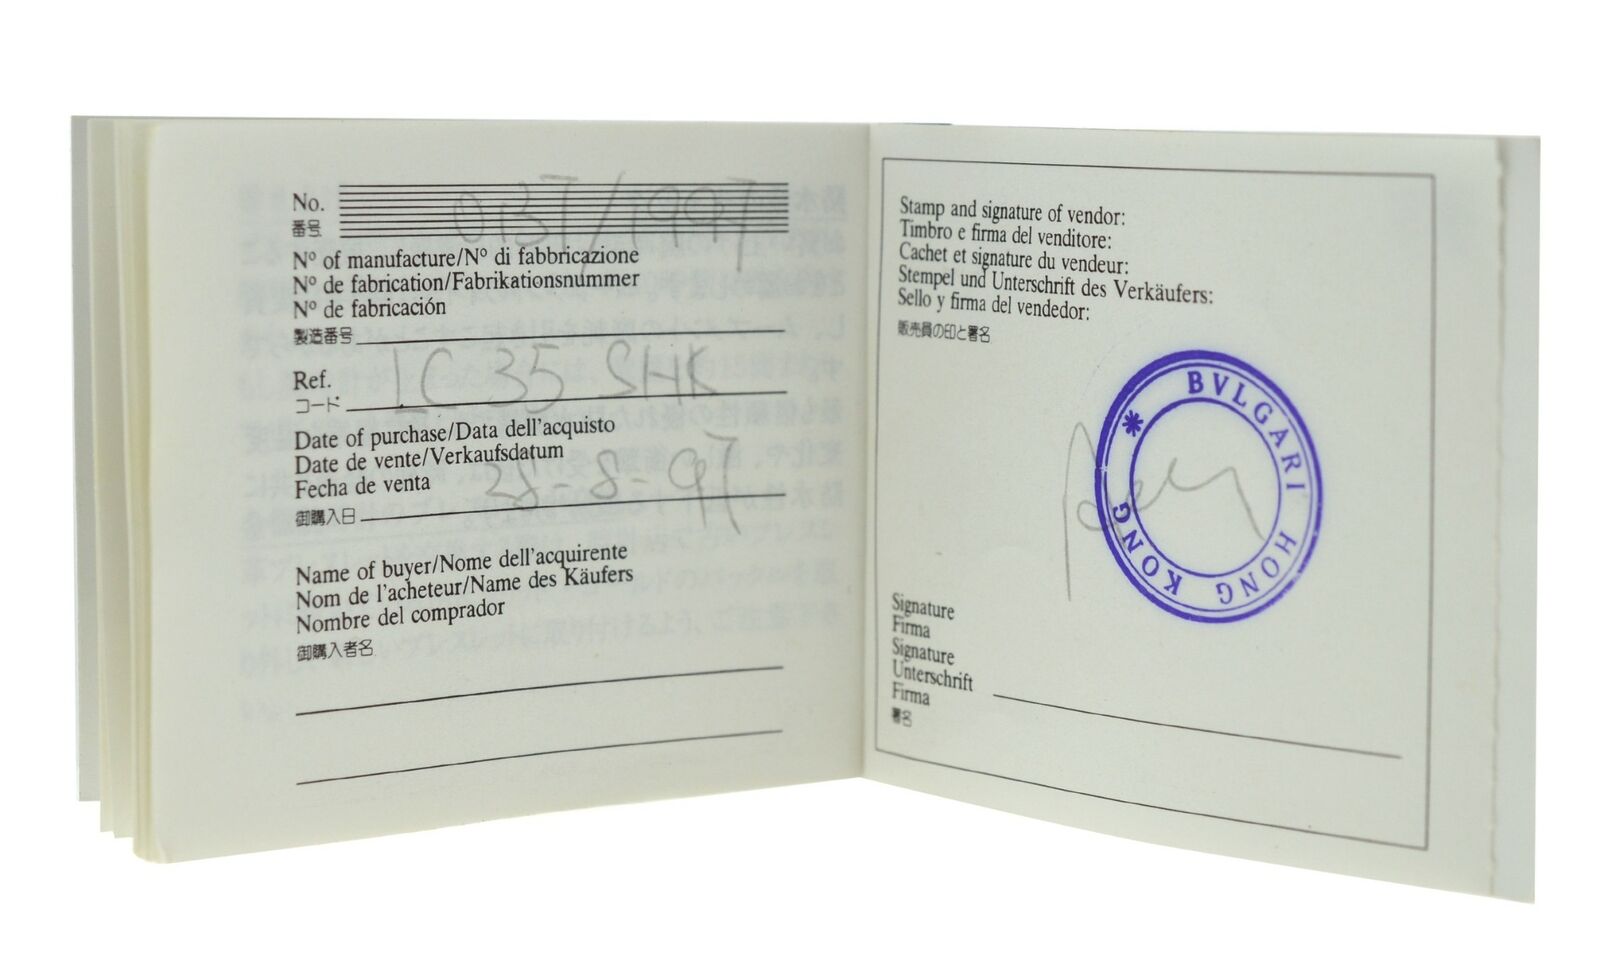 No. 0137/1997
番号
Nº of manufacture/Nº di fabbricazione
Nº de fabrication/Fabrikationsnummer
Nº de fabricación
製造番号
Ref. LC 35 SHK
コード
Date of purchase/Data dell'acquisto
Date de vente/Verkaufsdatum
Fecha de venta 28-8-97
御購入日
Name of buyer/Nome dell'acquirente
Nom de l'acheteur/Name des Käufers
Nombre del comprador
御購入者名
Stamp and signature of vendor:
Timbro e firma del venditore:
Cachet et signature du vendeur:
Stempel und Unterschrift des Verkäufers:
Sello y firma del vendedor:
販売員の印と署名
BVLGARI HONG KONG
Signature
Firma
Signature
Unterschrift
Firma
署名